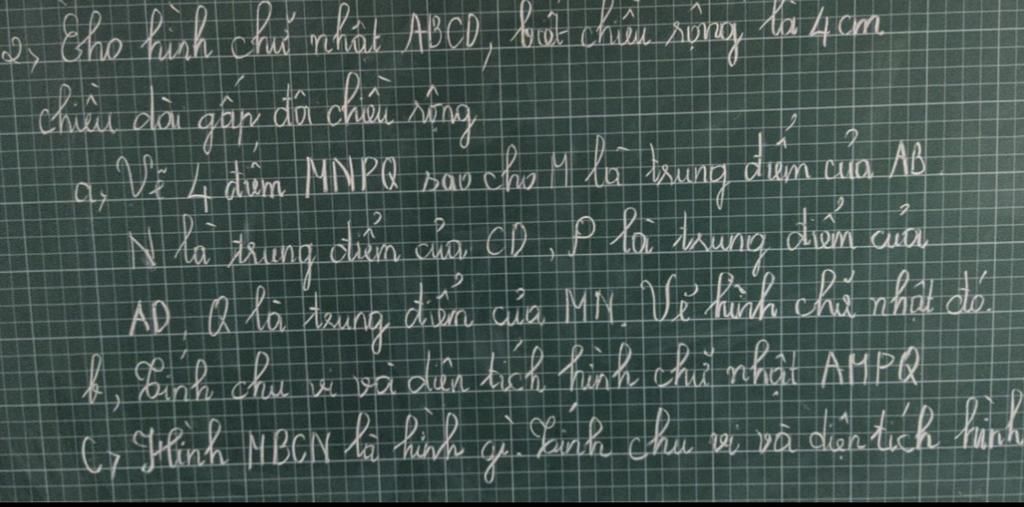 2, Cho hình chữ nhật ABCD, biết chiều rộng là 4 cm
chiều dài gấp đôi chiều rộng
a, Vẽ 4 điểm MNPQ sao cho M là trung điểm của AB.
N là trung điểm của CD, P là trung điểm của
AD, Q là trung điểm của MN. Vẽ hình chữ nhật đó.
b, Tính chu vi và diện tích hình chữ nhật AMPQ
C, Hình MBCN là hình gì. Tính chu vi và diện tích hình